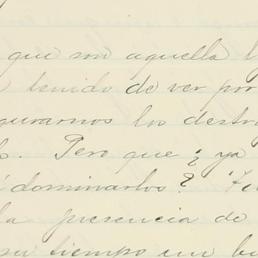 que son aquella
tenido de ver por
gurarnos los destro
. Pero que ¿ ya
dominarlos?
la presencia de
su tiempo un bu